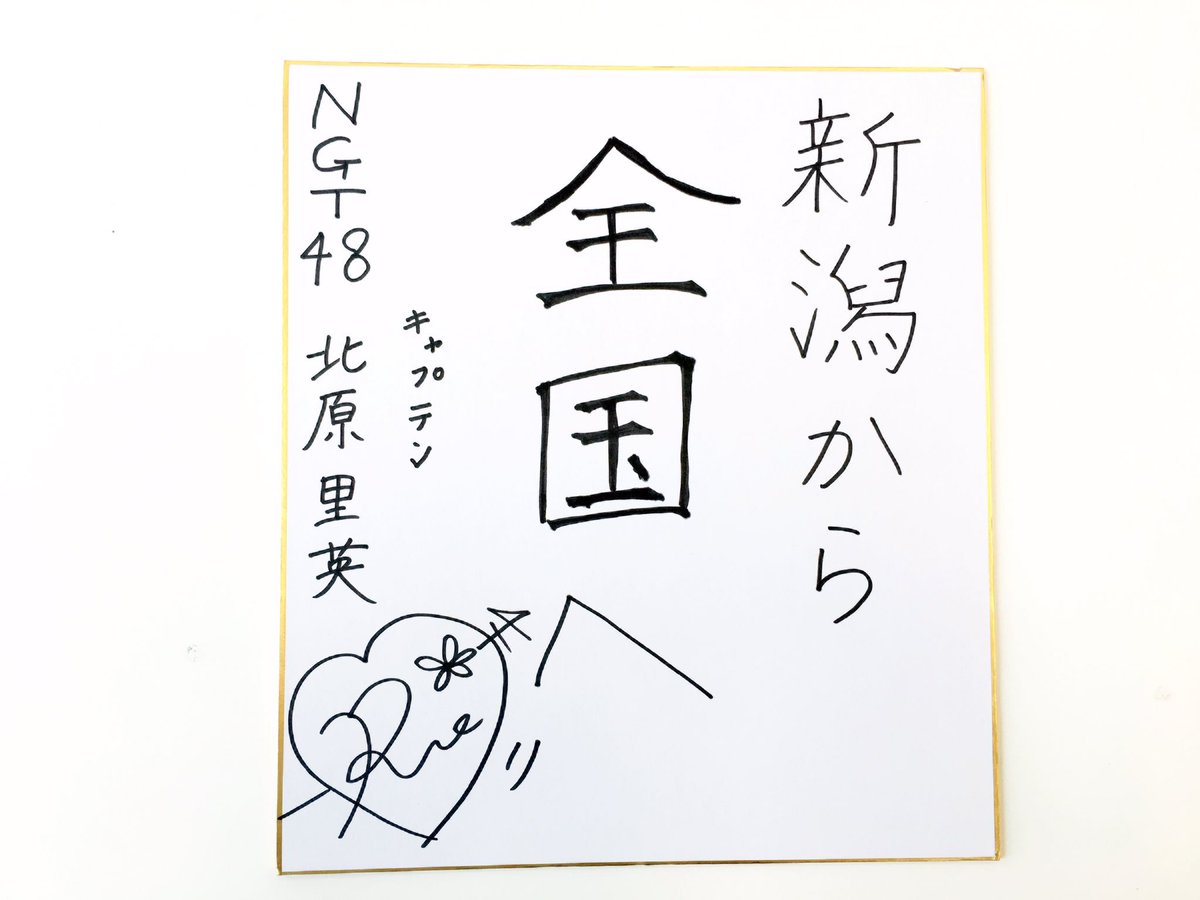 新潟から
全国へ
キャプテン
NGT48 北原里英
Rie